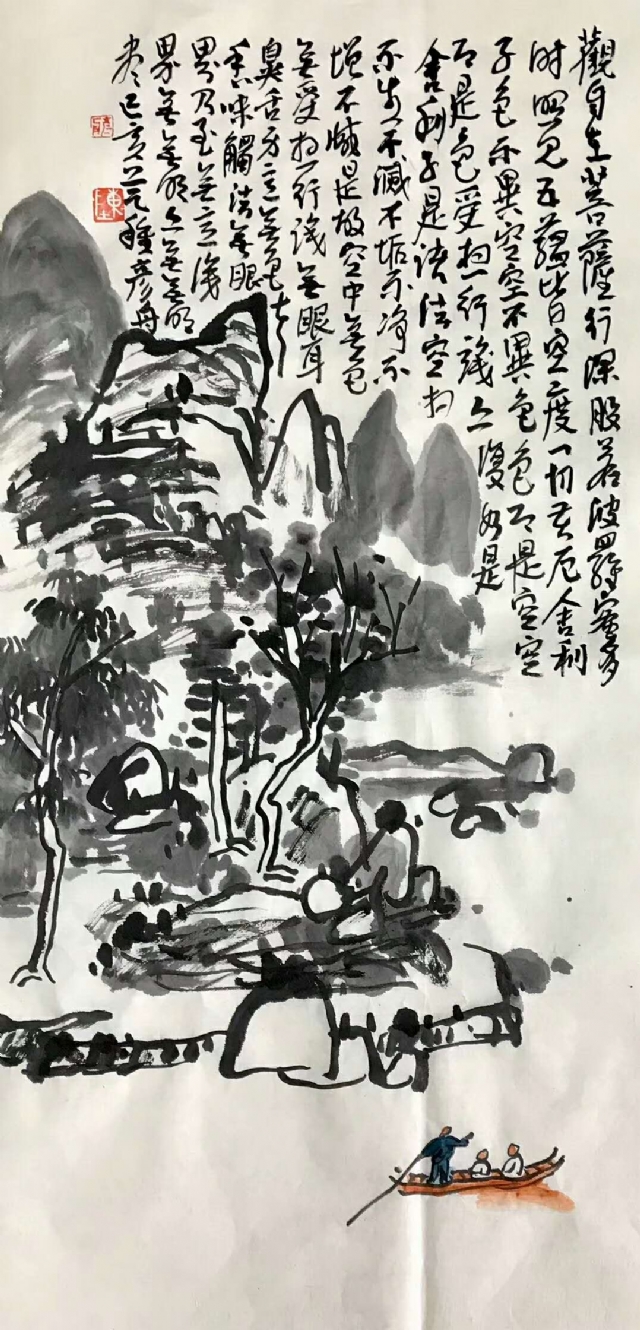 觀自在菩薩行深般若波羅蜜多
時照見五蘊皆空度一切苦厄舍利
子色不異空空不異色色即是空空
即是色受想行識亦復如是
舍利子是諸法空相
不生不滅不垢不淨不
增不減是故空中無色
無受想行識無眼耳
鼻舌身意無色
香味觸法無眼
界乃至無意識
界無無明亦無無明
盡己亥之冬